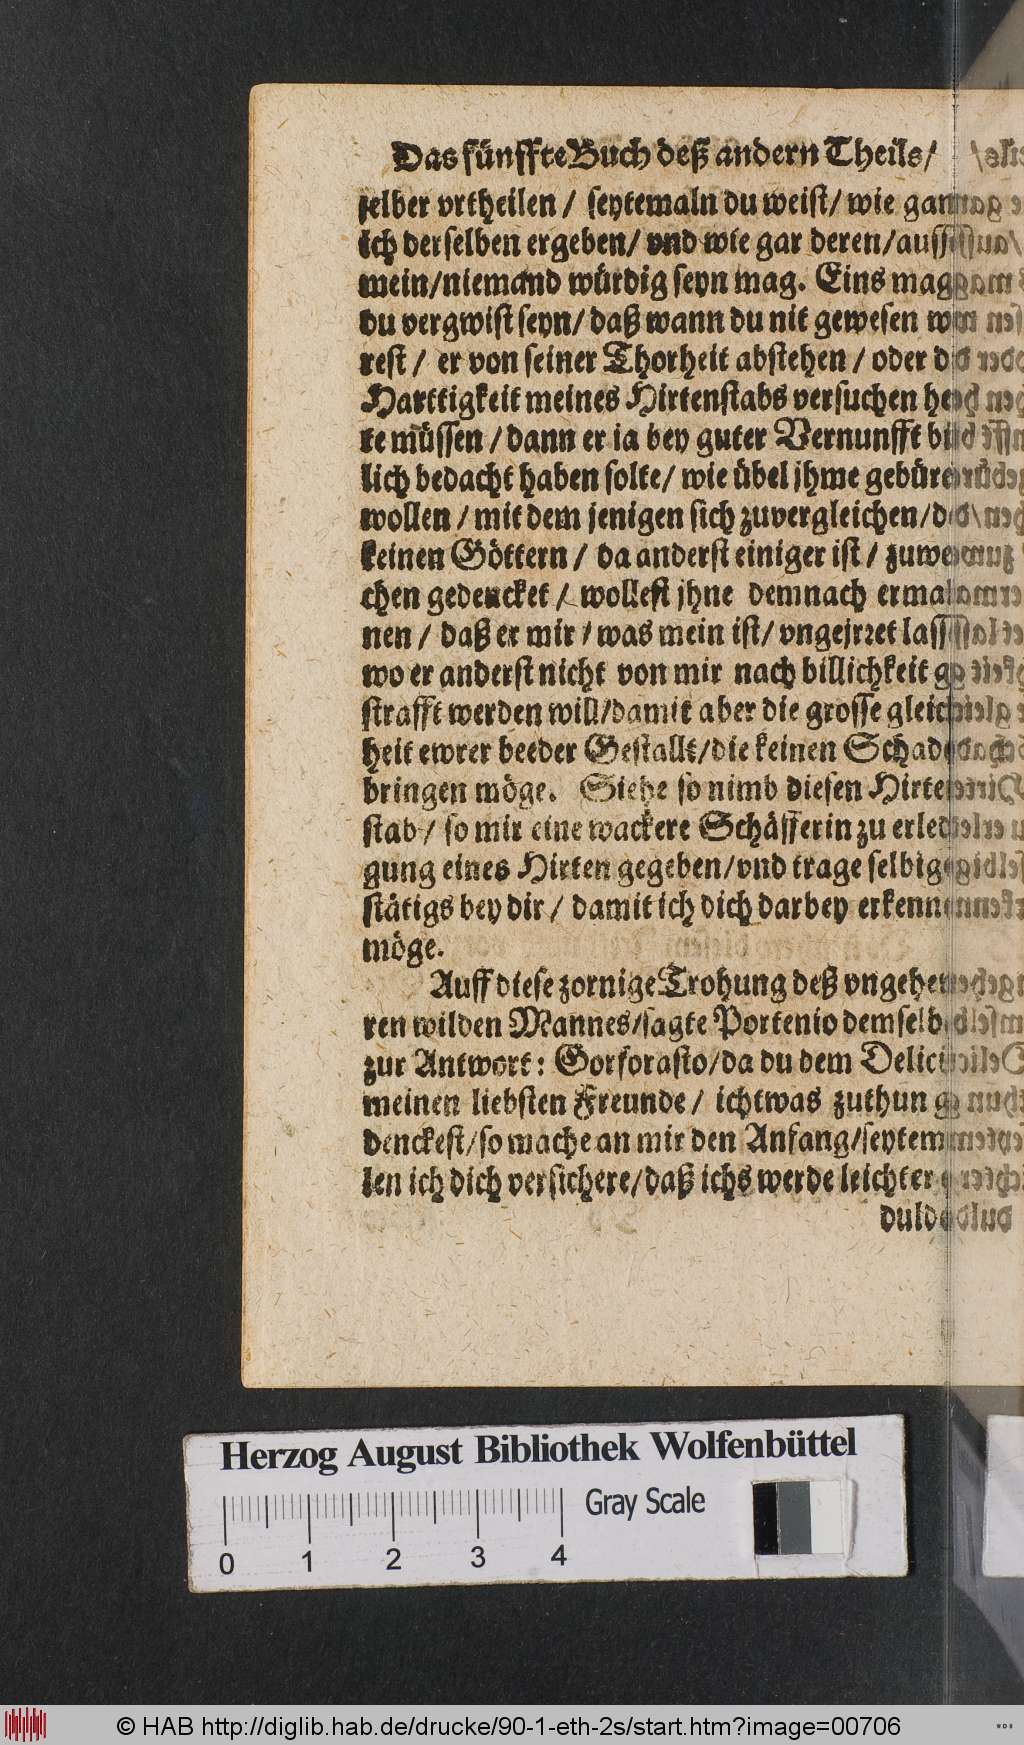 Das fünffte Buch deß andern Theils/
selber vrtheilen / seytemaln du weist/ wie gantz
ich derselben ergeben/ vnd wie gar deren/ausser
mein/niemand würdig seyn mag. Eins mag
du vergwist seyn/ daß wann du nit gewesen we-
rest / er von seiner Thorheit abstehen / oder die
Harttigkeit meines Hirtenstabs versuchen het-
te müssen / dann er ja bey guter Vernunfft bil-
lich bedacht haben solte/ wie übel jhme gebüren
wollen / mit dem jenigen sich zuvergleichen/der
keinen Göttern / da anderst einiger ist / zuwei-
chen gedencket / wollest jhne demnach ermah-
nen / daß er mir / was mein ist/ vngejrret lasse/
wo er anderst nicht von mir nach billichkeit ge-
strafft werden will/damit aber die grosse gleich-
heit ewrer beeder Gestallt/die keinen Schaden
bringen möge. Siehe so nimb diesen Hirten-
stab / so mir eine wackere Schäfferin zu erledi-
gung eines Hirten gegeben/vnd trage selbigen
stätigs bey dir / damit ich dich darbey erkennen
möge.
Auff diese zornige Trohung deß vngeheu-
ren wilden Mannes/sagte Portenio demselben
zur Antwort: Gorforasto/da du dem Delicio
meinen liebsten Freunde / ichtwas zuthun ge-
denckest/so mache an mir den Anfang/seytem-
len ich dich versichere/daß ichs werde leichter
duld
Herzog August Bibliothek Wolfenbüttel
Gray Scale
0 1 2 3 4
© HAB http://diglib.hab.de/drucke/90-1-eth-2s/start.htm?image=00706